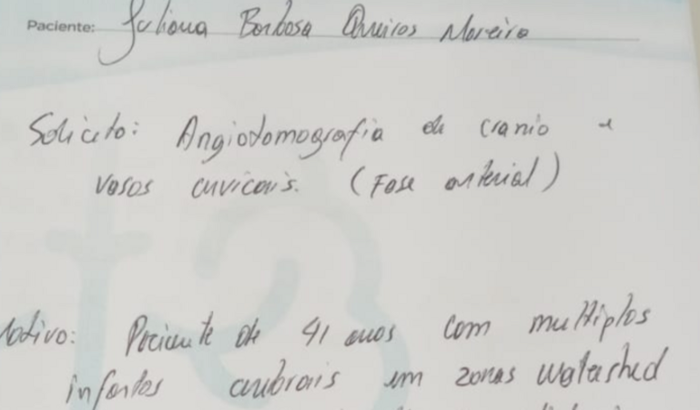 Paciente: Juliana Barbosa Queiros Moreira
Solicito: Angiotomografia de cranio e
vasos cervicais. (Fase arterial)
Motivo: Paciente de 41 anos com multiplos
infartos cerebrais em zonas watershed